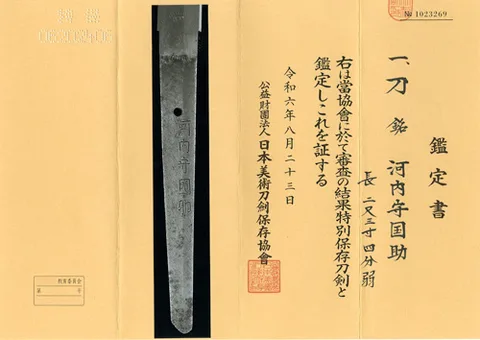 № 1023269
鑑定書
一、刀 銘 河内守国助
長 二尺三寸四分弱
右は當協會に於て審査の結果特別保存刀剣と
鑑定しこれを証する
令和六年八月二十三日
公益財團法人 日本美術刀劍保存協會
河内守國助
教育委員会
第 号